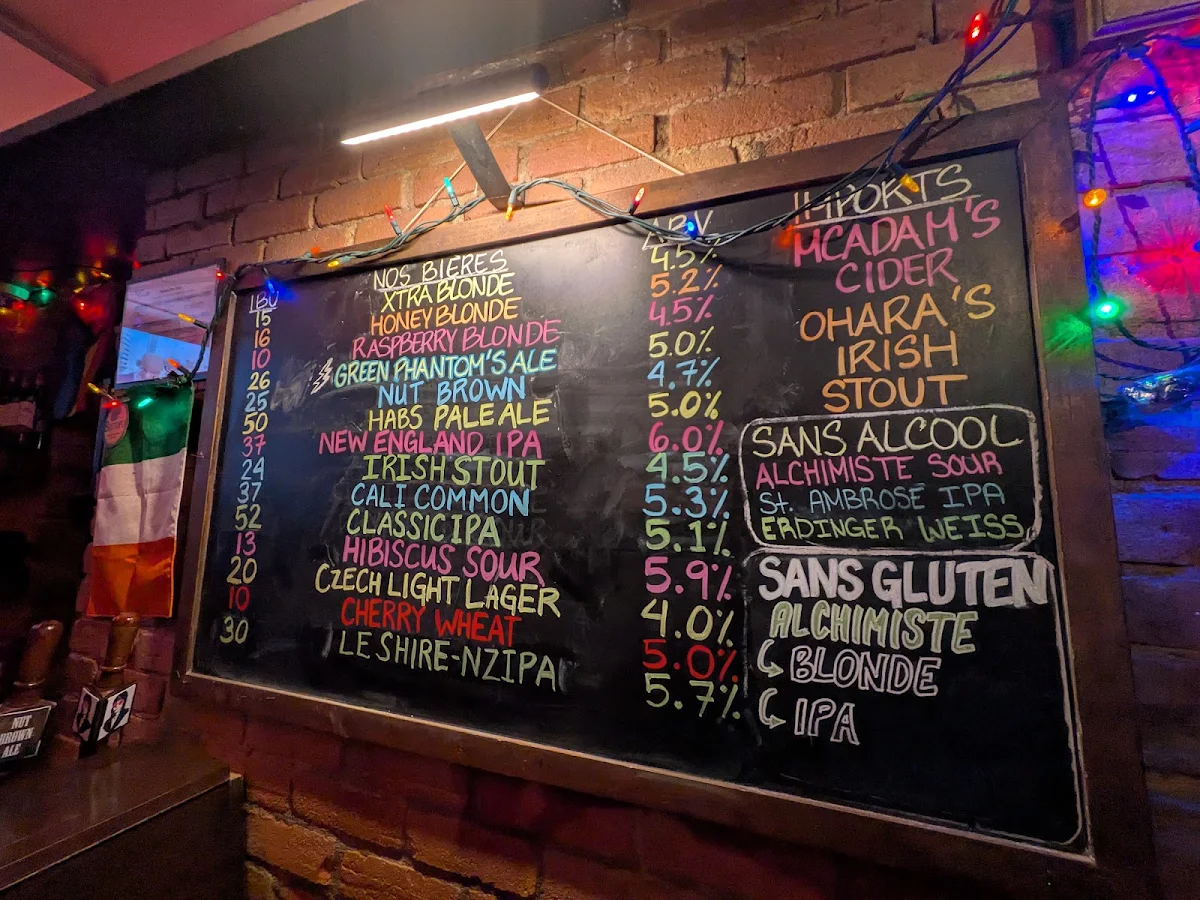 IBU NOS BIERES ABV
15 XTRA BLONDE 4.5%
16 HONEY BLONDE 5.2%
10 RASPBERRY BLONDE 4.5%
26 GREEN PHANTOM'S ALE 5.0%
25 NUT BROWN 4.7%
50 HABS PALE ALE 5.0%
37 NEW ENGLAND IPA 6.0%
24 IRISH STOUT 4.5%
37 CALI COMMON 5.3%
52 CLASSIC IPA 5.1%
13 HIBISCUS SOUR 5.9%
20 CZECH LIGHT LAGER 4.0%
10 CHERRY WHEAT 5.0%
30 LE SHIRE-NZIPA 5.7%
IMPORTS
MCADAM'S
CIDER
OHARA'S
IRISH
STOUT
SANS ALCOOL
ALCHIMISTE SOUR
St. AMBROSE IPA
ERDINGER WEISS
SANS GLUTEN
ALCHIMISTE
BLONDE
IPA
NUT
BROWN
ALE